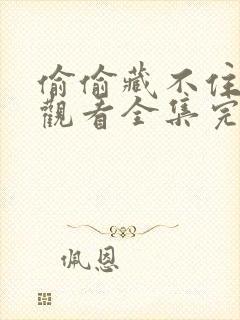 偷偷藏不住
觀看全集完
佩恩